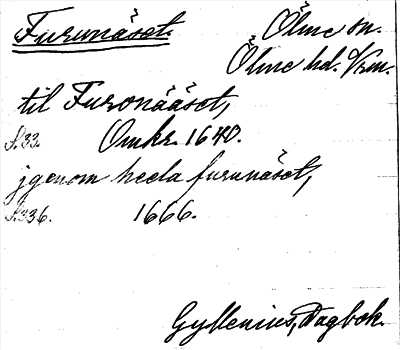 Furunäset. Ölme sn.
Ölme hd. Vrm.
til Furonääset,
S. 33. Omkr. 1640.
jgenom heela furunäset,
S. 336. 1666.
Gyllenius, Dagbok.